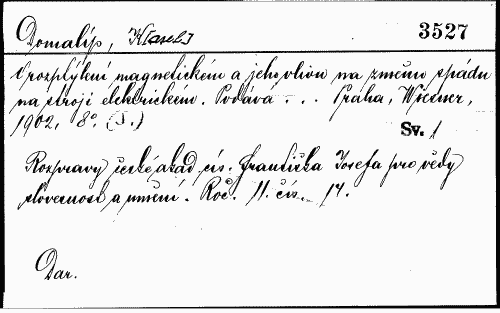 Domalíp, K[arel]
3527
O rozptýlení magnetickém a jeho vlivu na změnu spádu
na stroji elektrickém. Podává ... Praha, Wiesner,
1902, 8º. (S.)
Sv. 1
Rozpravy české akad. cís. Františka Josefa pro vědy
slovesnost a umění. Roč. 11. čís. 14.
Dar.